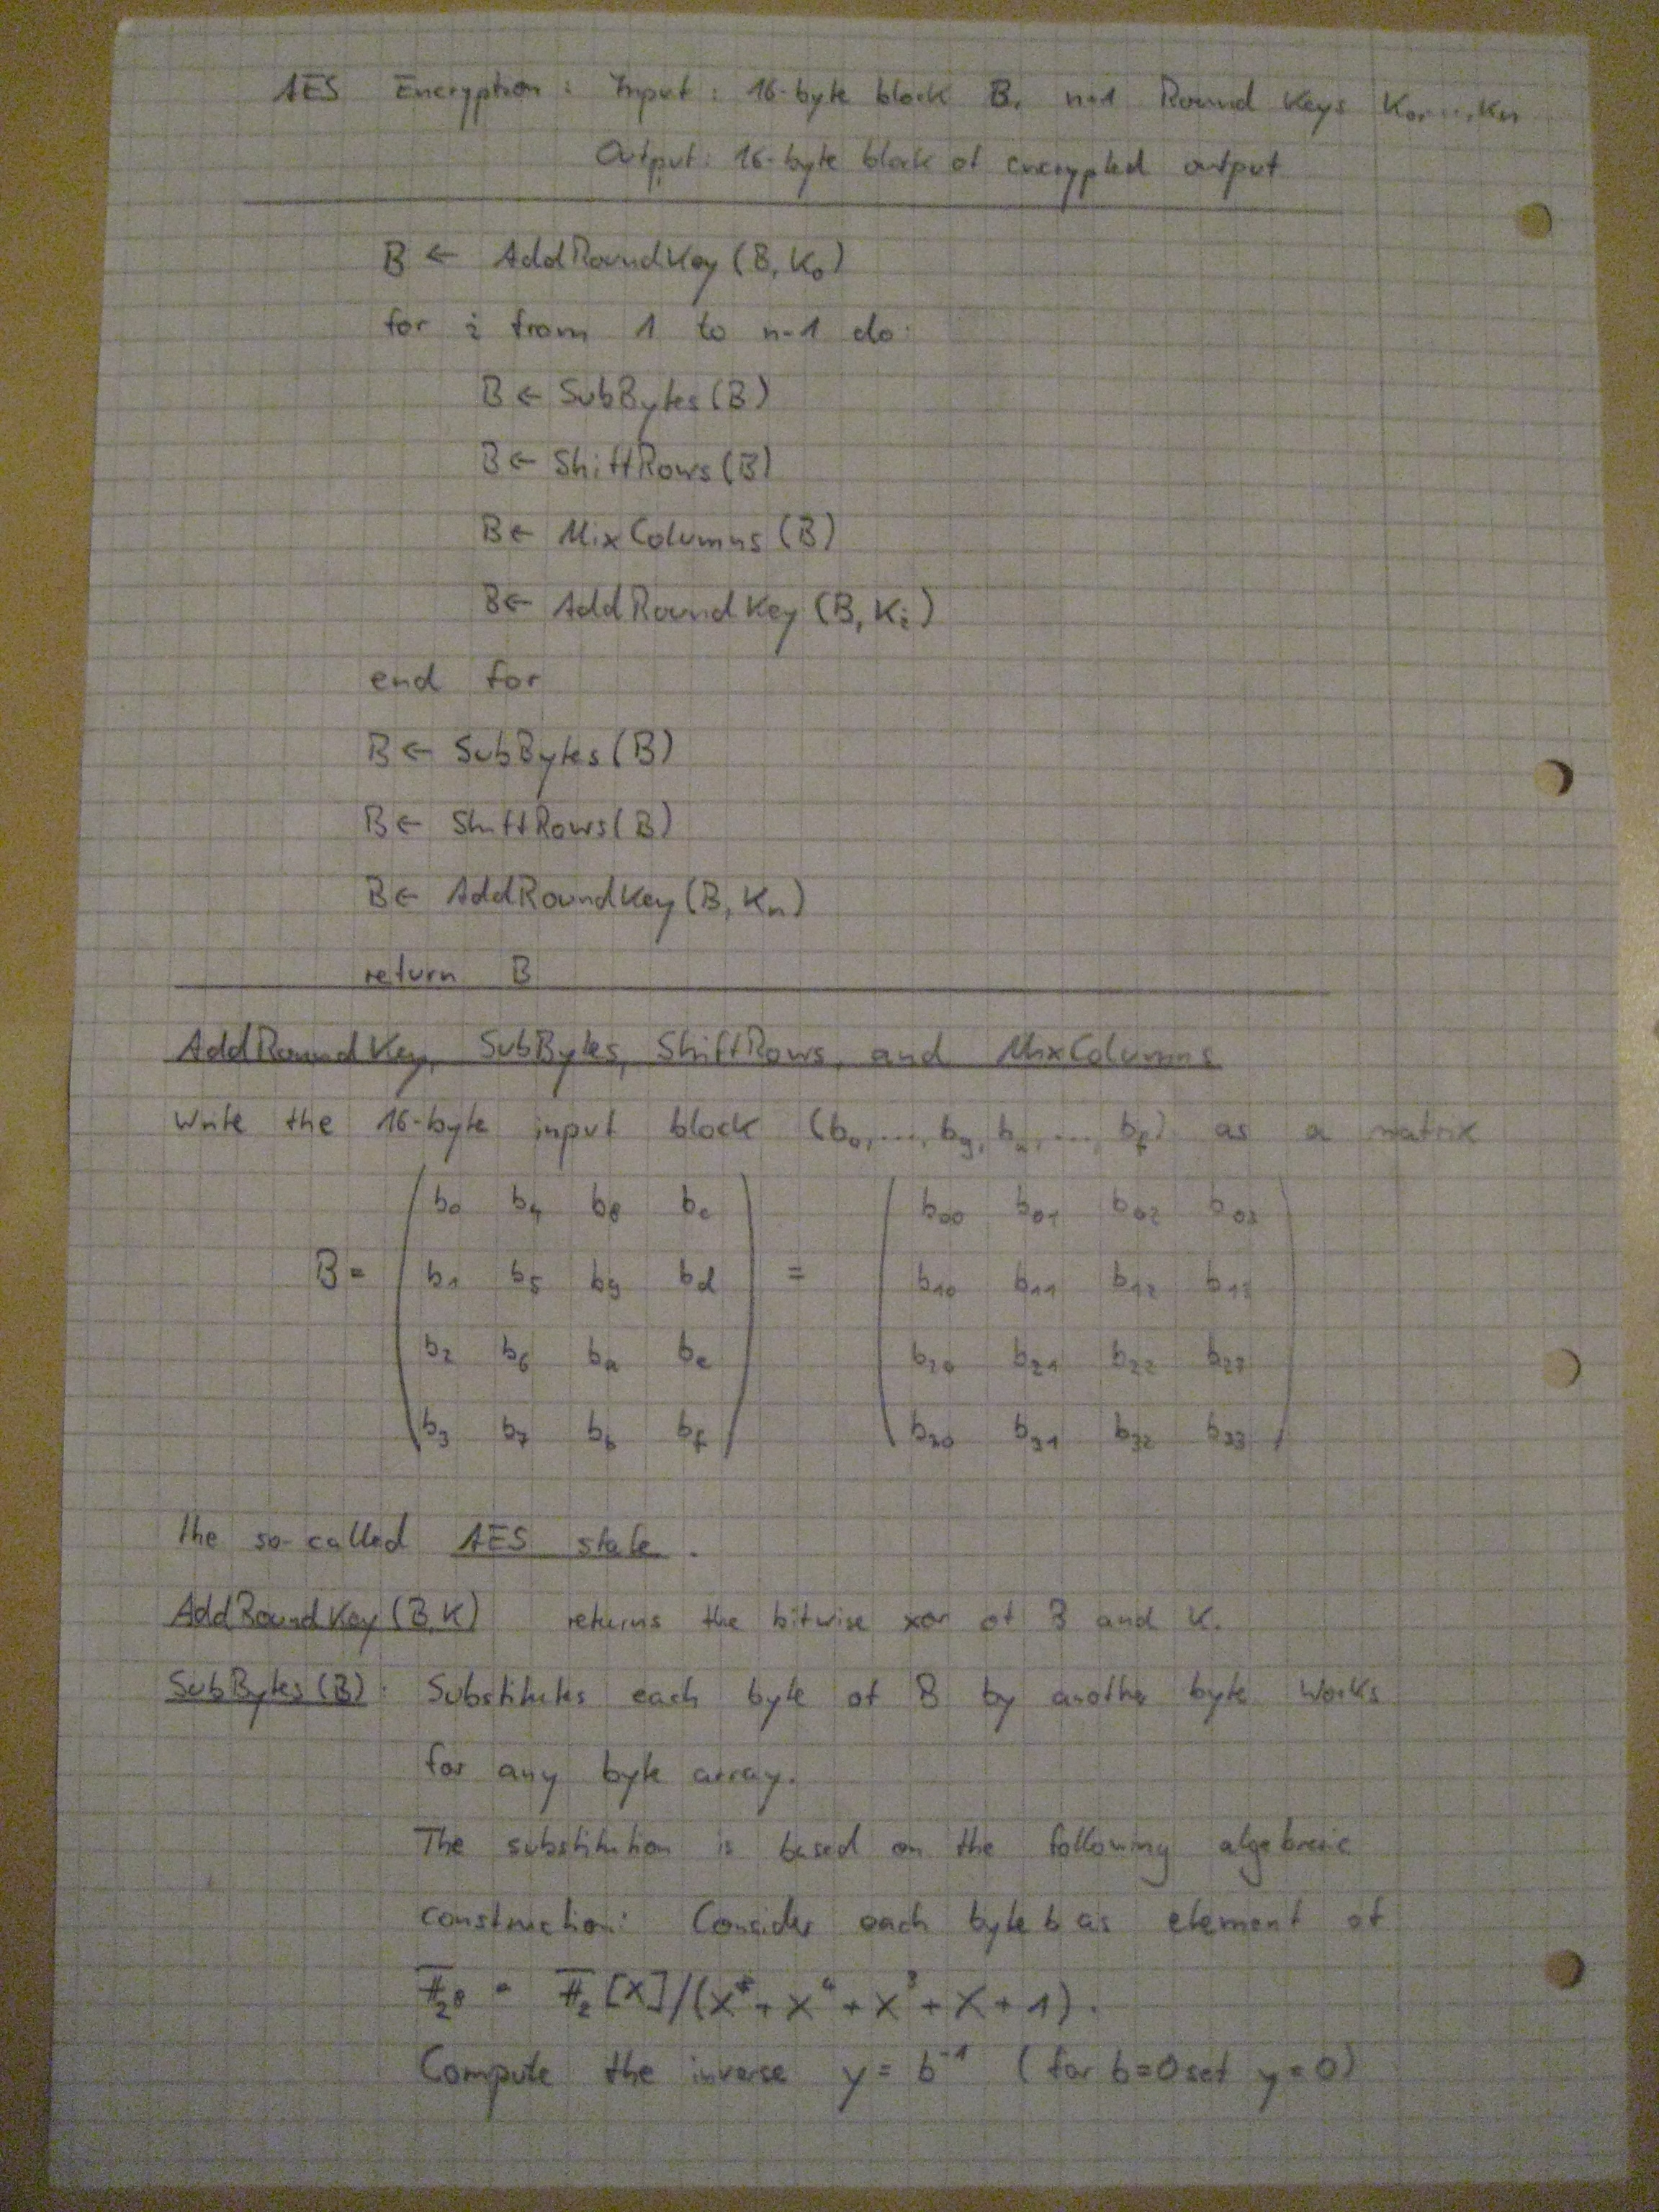 AES Encryption: Input: 16-byte block B, n+1 Round Keys K₀,...,Kₙ
Output: 16-byte block of encrypted output
B ← AddRoundKey(B,K₀)
for i from 1 to n-1 do:
B ← SubBytes(B)
B ← ShiftRows(B)
B ← MixColumns(B)
B ← AddRoundKey(B,Kᵢ)
end for
B ← SubBytes(B)
B ← ShiftRows(B)
B ← AddRoundKey(B,Kₙ)
return B
AddRoundKey, SubBytes, ShiftRows, and MixColumns
Write the 16-byte input block (b₀,...,b₉,bₐ,...,b_f) as a matrix
b₀ b₄ b₈ b_c b₀₀ b₀₁ b₀₂ b₀₃
B = b₁ b₅ b₉ b_d = b₁₀ b₁₁ b₁₂ b₁₃
b₂ b₆ bₐ b_e b₂₀ b₂₁ b₂₂ b₂₃
b₃ b₇ b_b b_f b₃₀ b₃₁ b₃₂ b₃₃
the so-called AES state.
AddRoundKey(B,K) returns the bitwise xor of B and K.
SubBytes(B): Substitutes each byte of B by another byte works
for any byte array.
The substitution is based on the following algebraic
construction: Consider each byte b as element of
𝔽₂⁸ = 𝔽₂[X]/(X⁸+X⁴+X³+X+1).
Compute the inverse y = b⁻¹ (for b=0 set y=0)